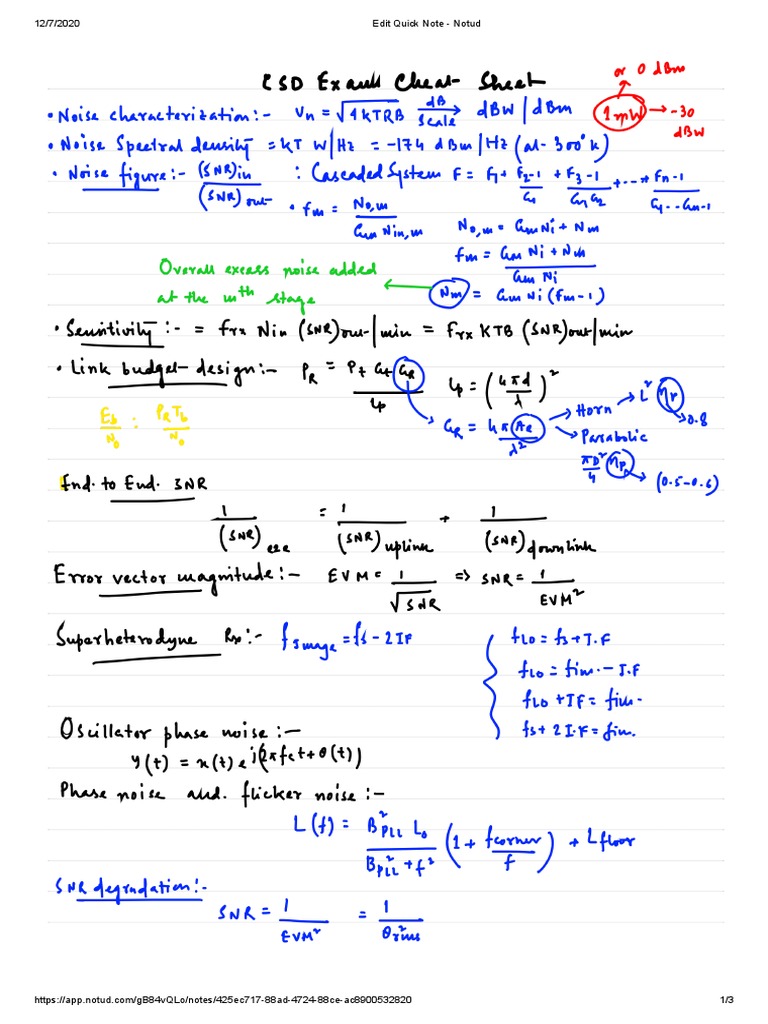 12/7/2020 Edit Quick Note - Notud
CSD Exam Cheat Sheet
or 0 dBm
• Noise characterization:- Vn = √4kTRB dB Scale → dBW | dBm 1mW → -30 dBW
• Noise Spectral density = kT W/Hz = -174 dBm/Hz (at 300°k)
• Noise figure:- (SNR)in / (SNR)out : Cascaded System F = F1 + F2-1 / G1 + F3-1 / G1G2 + ... + Fn-1 / G1...Gn-1
• fm = No,m / Gm Nin,m No,m = GmNi + Nm
fm = GmNi + Nm / GmNi
Overall excess noise added at the mth stage ← Nm = GmNi (Fm-1)
• Sensitivity:- = frx Nin (SNR)out|min = Frx KTB (SNR)out|min
• Link budget design:- PR = Pt Gt GR / Lp Lp = (4πd / λ)²
Eb / No : PR Tb / No
GR = 4π Ae / λ² → Horn → L² ηr → 0.8
→ Parabolic
πD² / 4 ηp → (0.5-0.6)
End. to End. SNR
1 / (SNR)e2e = 1 / (SNR)uplink + 1 / (SNR)downlink
Error vector magnitude:- EVM = 1 / √SNR => SNR = 1 / EVM²
Superheterodyne Rx:- fimage = fs - 2IF
fLO = fs + I.F
fLO = fim. - I.F
fLO + IF = fim.
fs + 2I.F = fim.
Oscillator phase noise:-
y(t) = x(t) e^j(2πfct + θ(t))
Phase noise and. flicker noise:-
L(f) = B²PLL Lo / B²PLL + f² (1 + fcorner / f) + Lfloor
SNR degradation:-
SNR = 1 / EVM² = 1 / θ²rms
https://app.notud.com/gB84vQLo/notes/425ec717-88ad-4724-88ce-ac8900532820 1/3